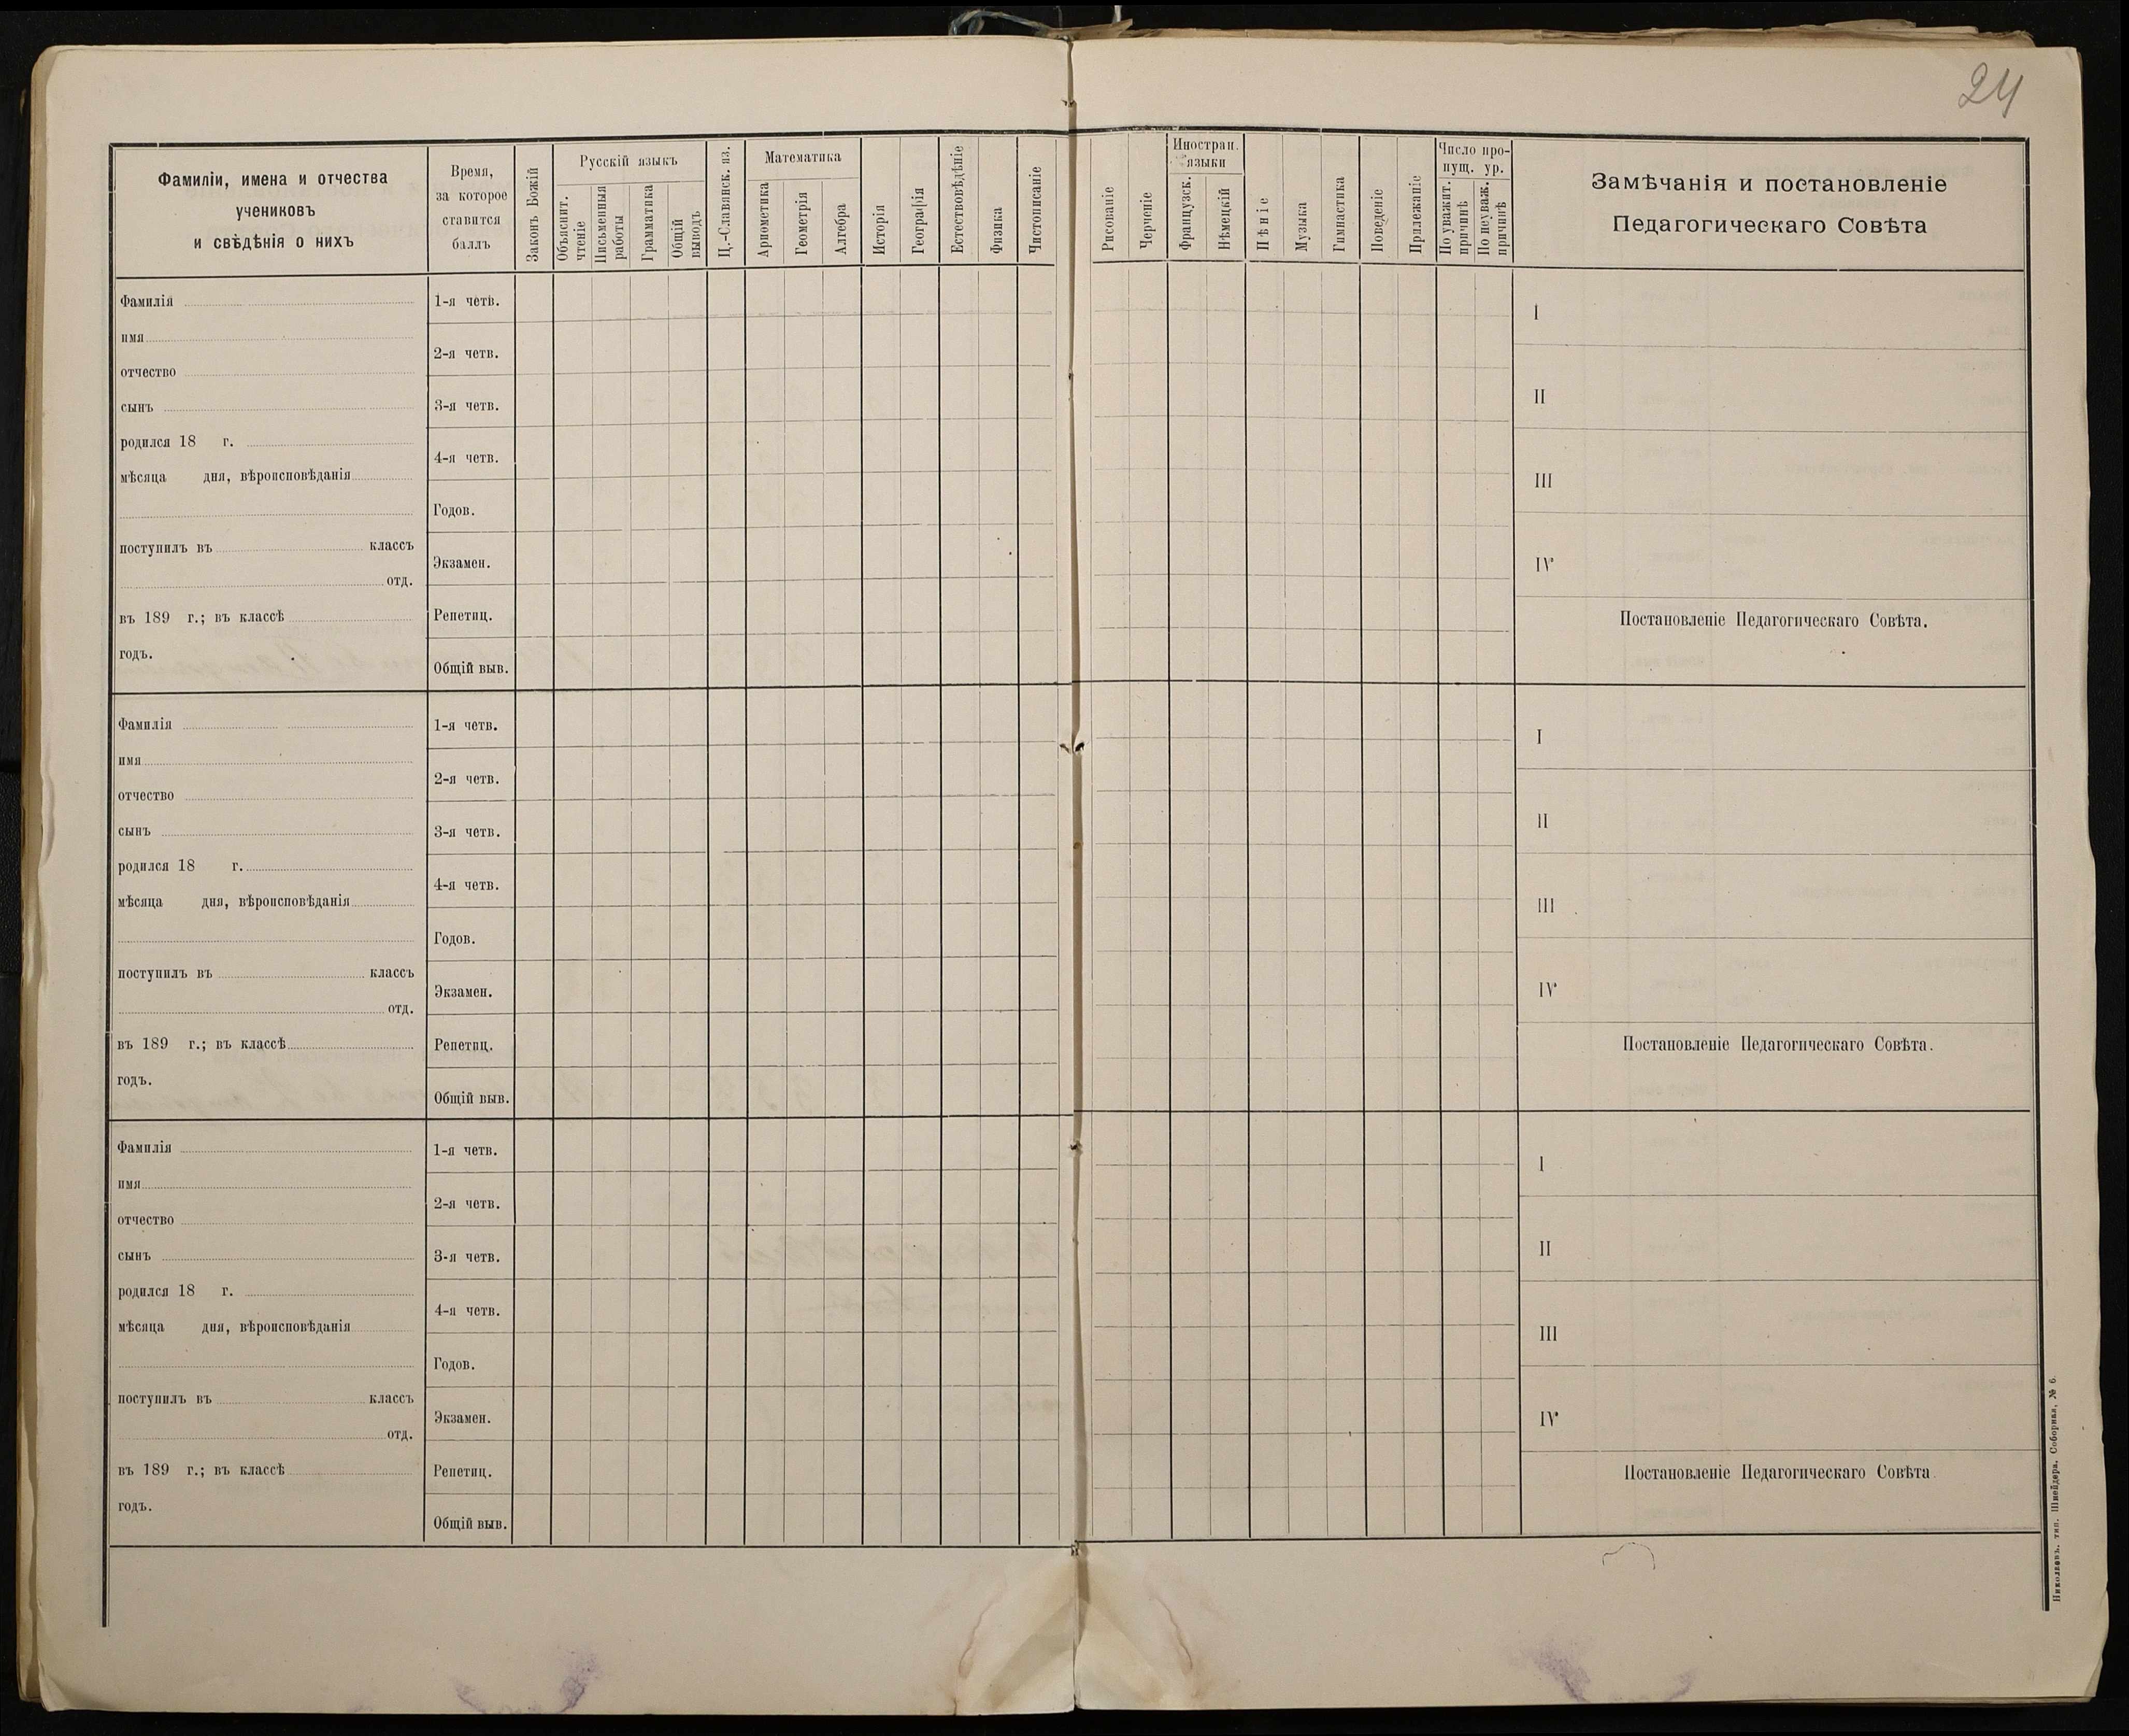 24
Фамиліи, имена и отчества
учениковъ
и свѣдѣнія о нихъ
Время,
за которое
ставится
баллъ
Законъ Божій
Русскій языкъ
Объяснит.
чтеніе
Письменныя
работы
Грамматика
Общій
выводъ
Ц.-Славянск. яз.
Математика
Ариѳметика
Геометрія
Алгебра
Исторія
Географія
Естествовѣдѣніе
Физика
Чистописаніе
Рисованіе
Черченіе
Иностран.
языки
Французск.
Нѣмецкій
Пѣніе
Музыка
Гимнастика
Поведеніе
Прилежаніе
Число про-
пущ. ур.
По уважит.
причинѣ
По неуваж.
причинѣ
Замѣчанія и постановленіе
Педагогическаго Совѣта
Фамилія
имя
отчество
сынъ
родился 18 г.
мѣсяца дня, вѣроисповѣданія
поступилъ въ классъ
отд.
въ 189 г.; въ классѣ
годъ.
1-я четв.
2-я четв.
3-я четв.
4-я четв.
Годов.
Экзамен.
Репетиц.
Общій выв.
I
II
III
IV
Постановленіе Педагогическаго Совѣта.
Фамилія
имя
отчество
сынъ
родился 18 г.
мѣсяца дня, вѣроисповѣданія
поступилъ въ классъ
отд.
въ 189 г.; въ классѣ
годъ.
1-я четв.
2-я четв.
3-я четв.
4-я четв.
Годов.
Экзамен.
Репетиц.
Общій выв.
I
II
III
IV
Постановленіе Педагогическаго Совѣта.
Фамилія
имя
отчество
сынъ
родился 18 г.
мѣсяца дня, вѣроисповѣданія
поступилъ въ классъ
отд.
въ 189 г.; въ классѣ
годъ.
1-я четв.
2-я четв.
3-я четв.
4-я четв.
Годов.
Экзамен.
Репетиц.
Общій выв.
I
II
III
IV
Постановленіе Педагогическаго Совѣта.
Николаевъ, тип. Шнейдера, Соборная, № 6.